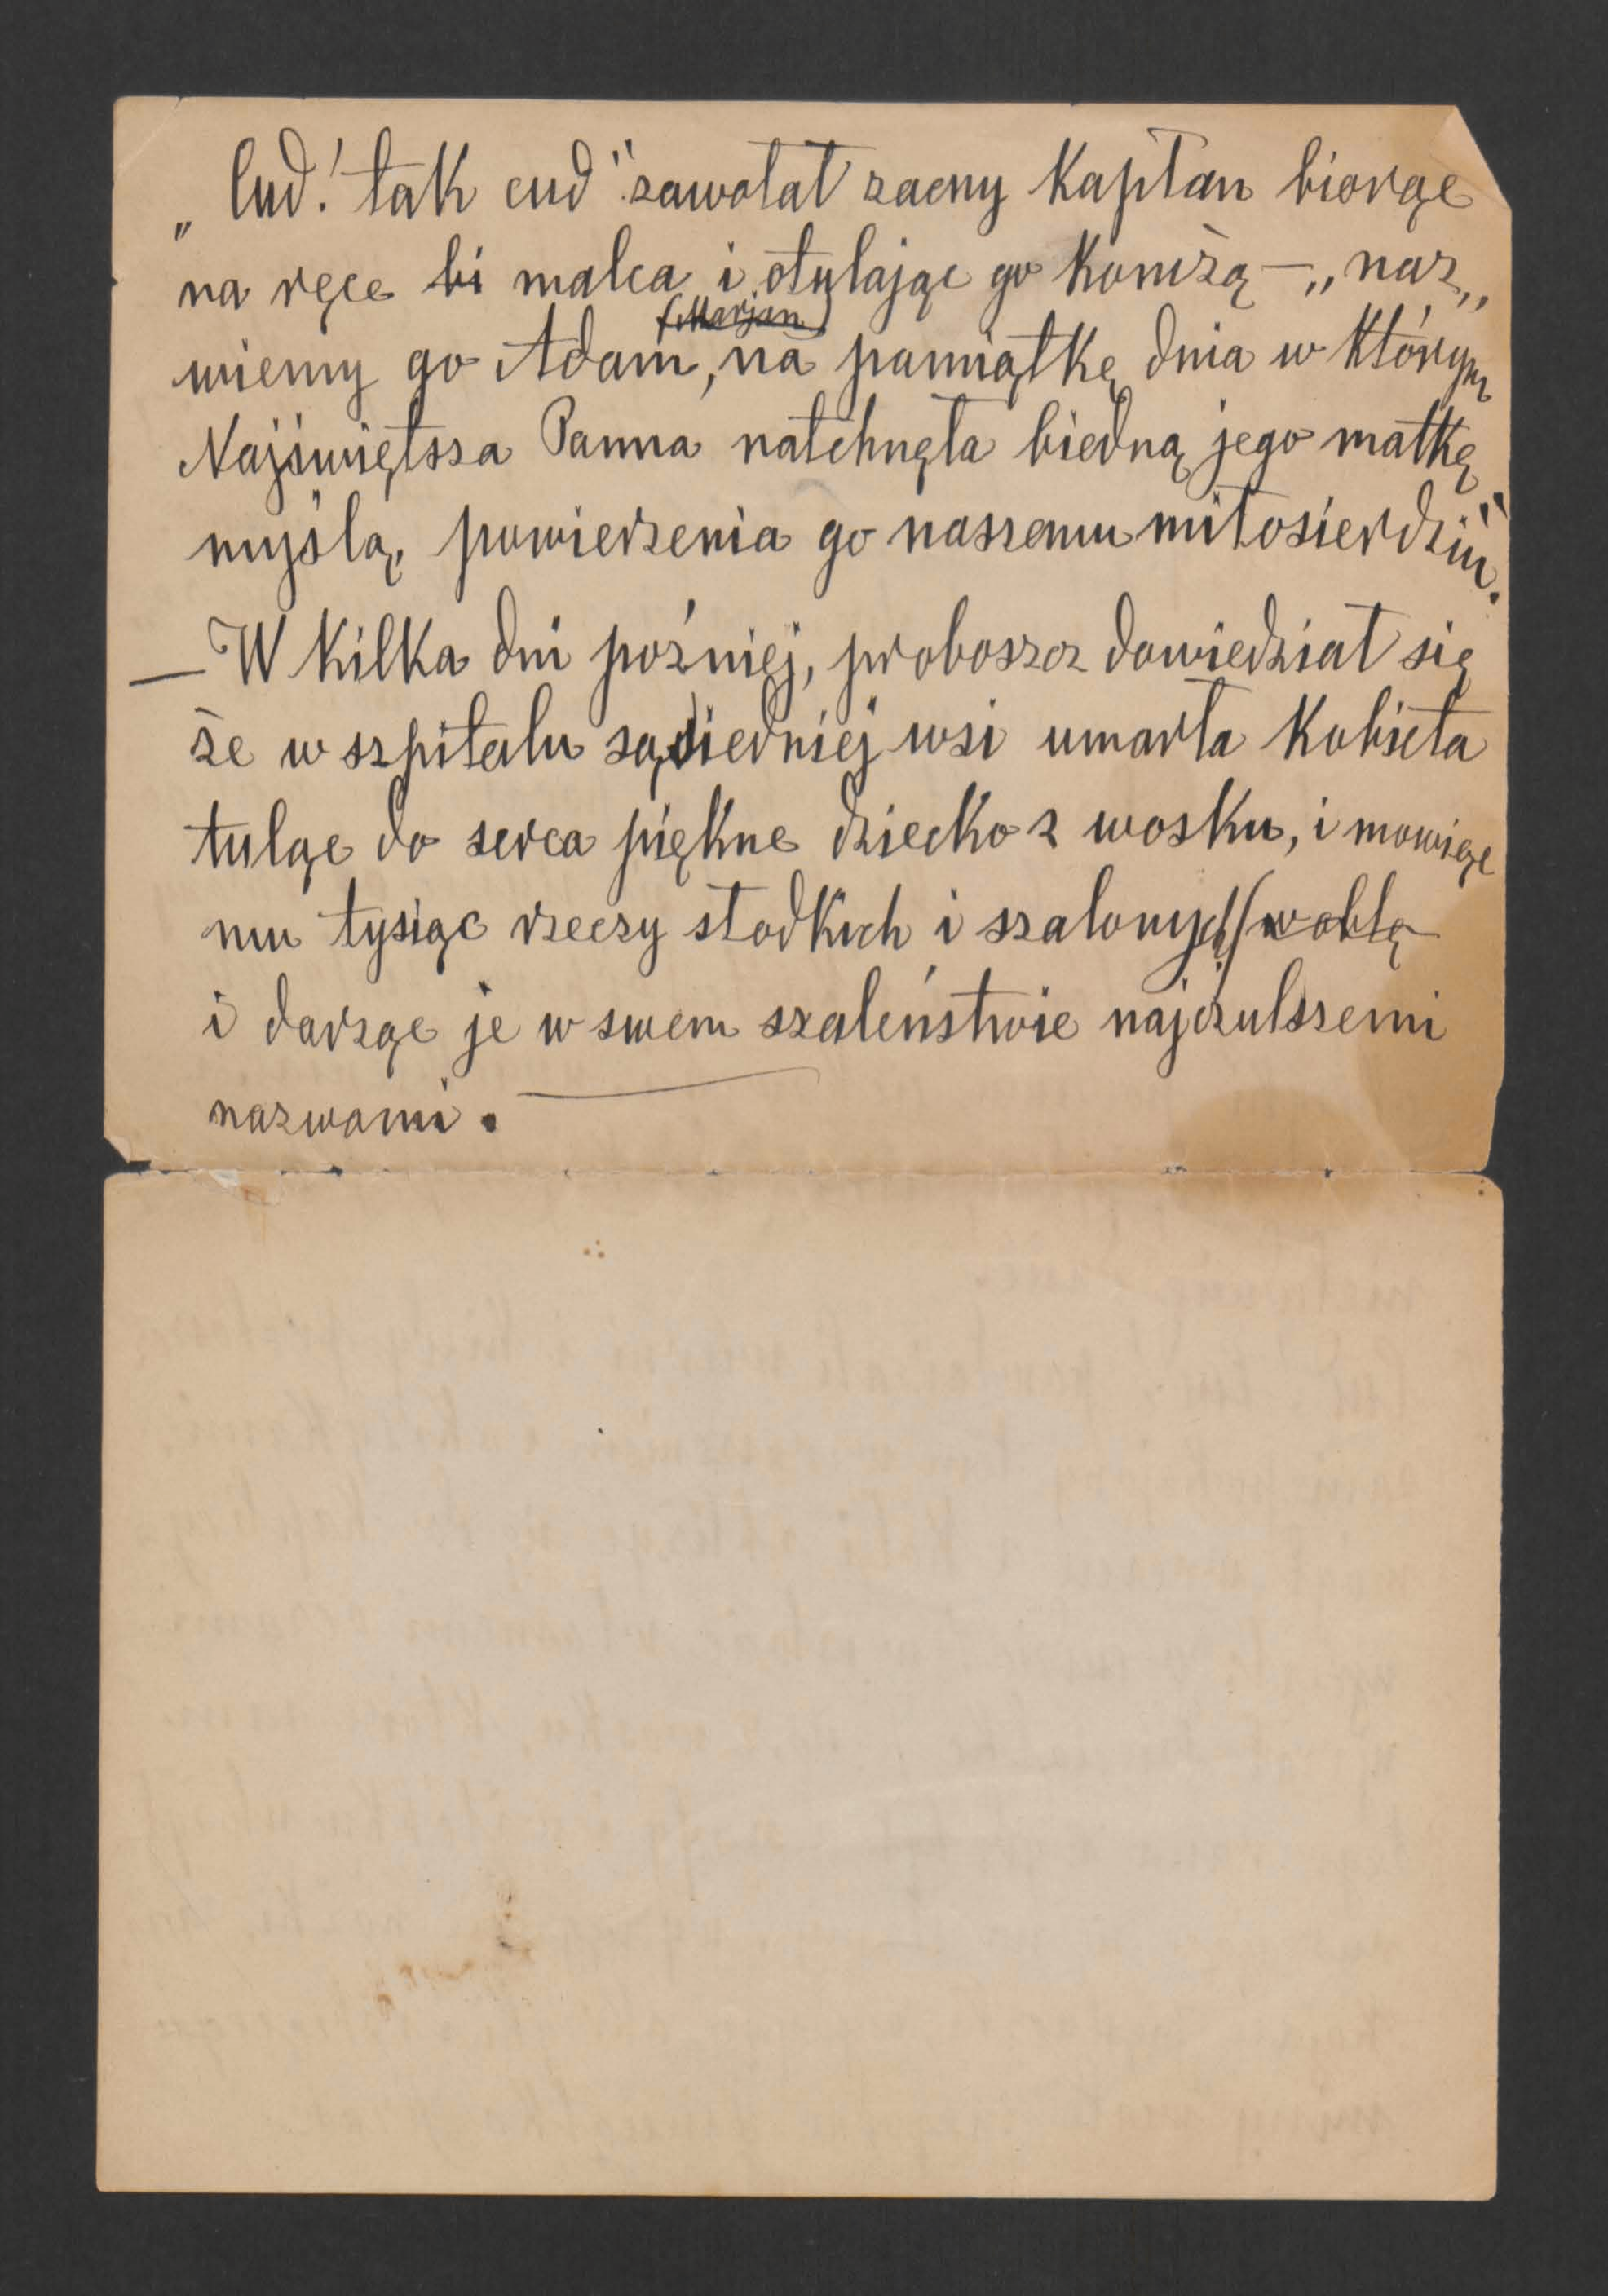 „Cud! tak cud" zawołał zacny Kapłan biorąc
na ręce bi malca i otulając go Komżą — „naz„
(Marjan)
wiemy go Adam, na pamiątkę dnia w którym
Najświętsza Panna natchnęła biedną jego matkę
myślą, powierzenia go naszemu miłosierdziu".
— W kilka dni poźniej, proboszcz dowiedział się
że w szpitalu sąsiedniej wsi umarła Kobieta
tuląc do serca piękne dziecko z wosku, i mowiąc
mu tysiąc rzeczy słodkich i szalonych (w obłę
i darząc je w swem szaleństwie najczulszemi
nazwami.